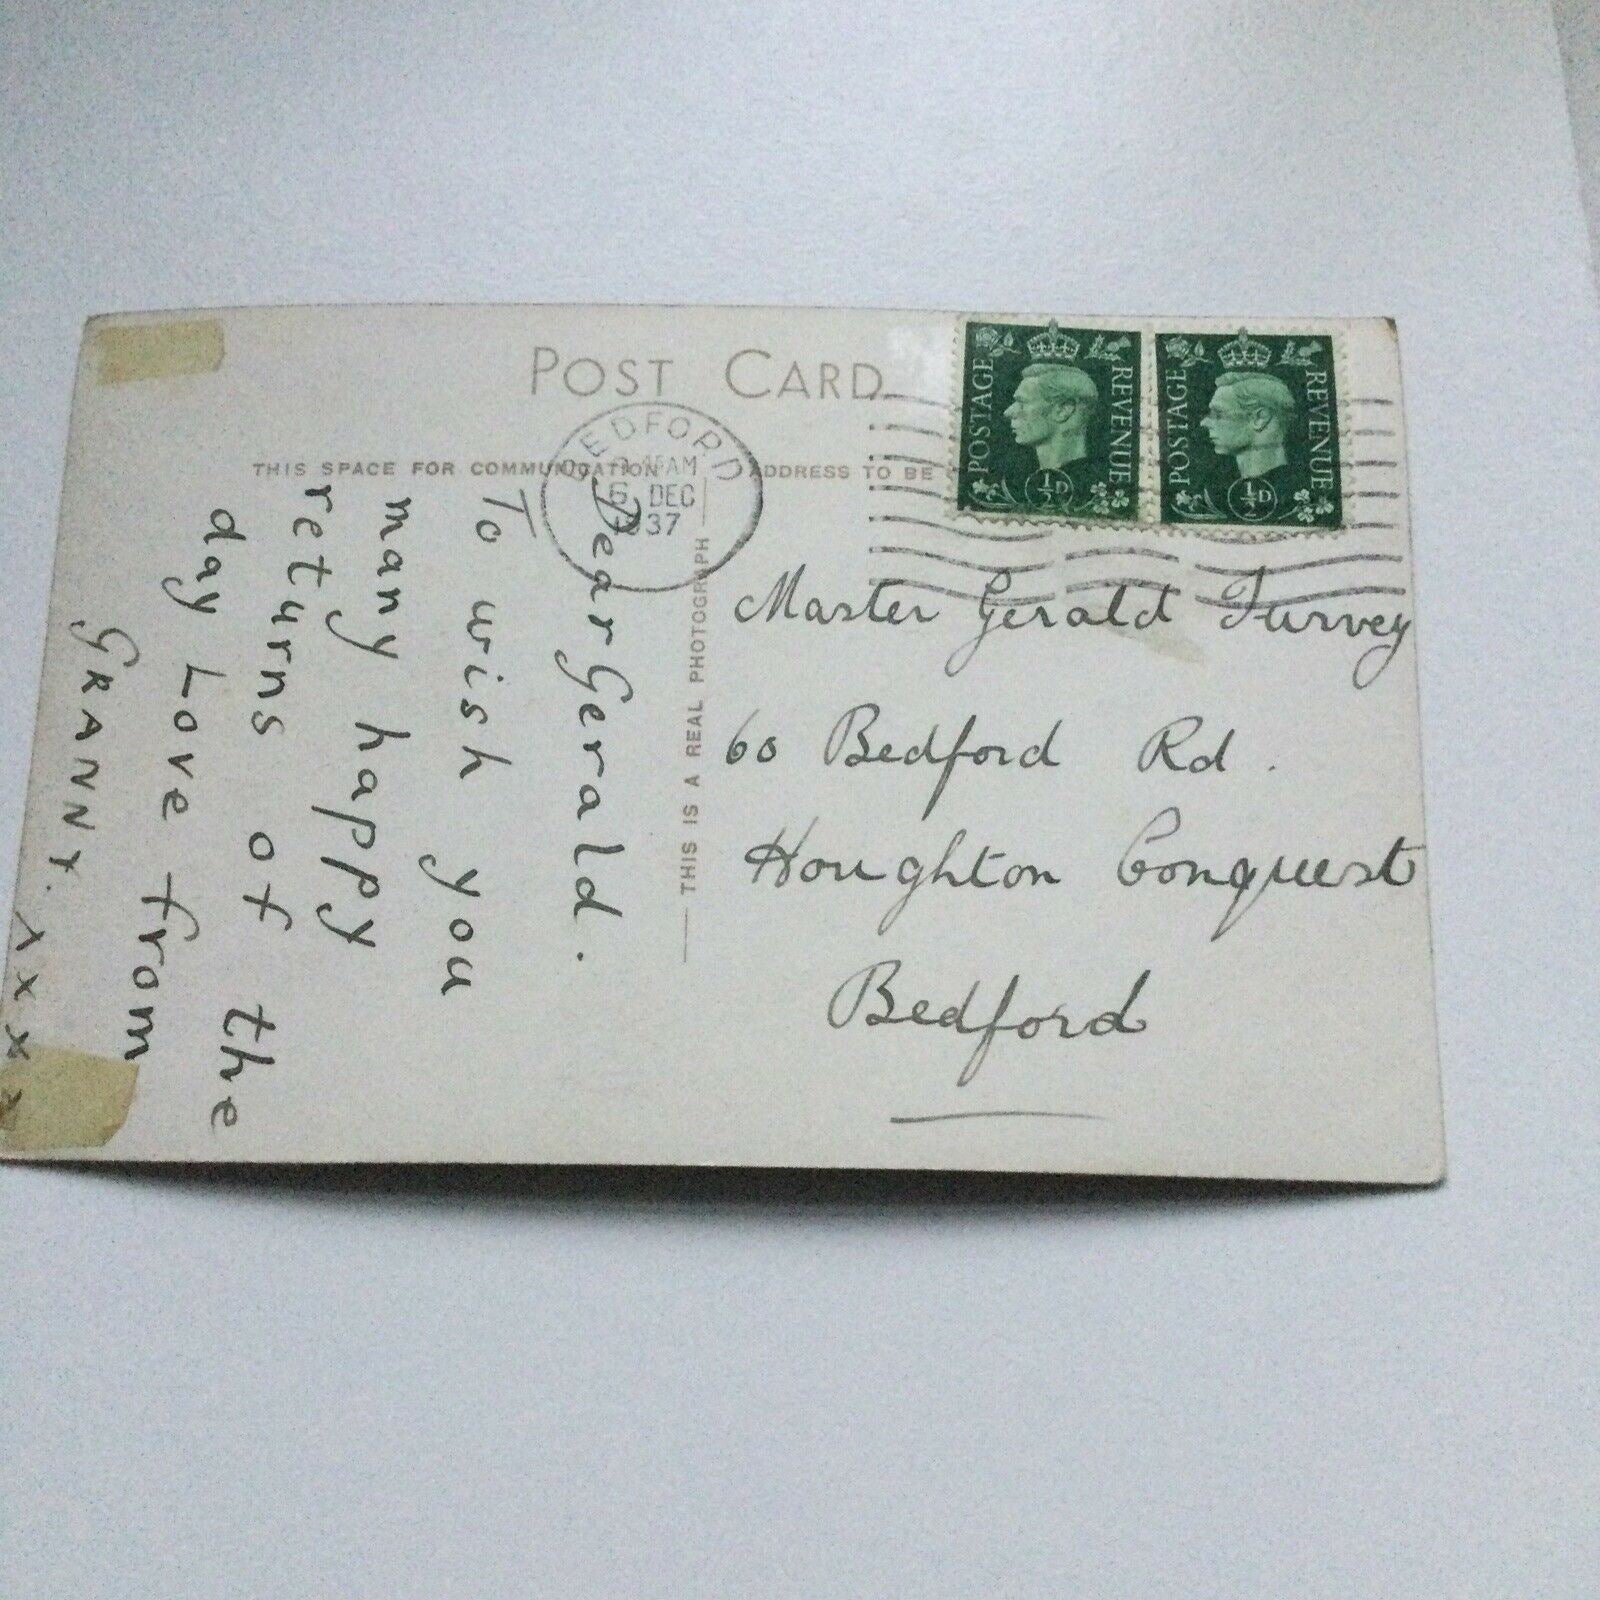 POST CARD
THIS SPACE FOR COMMUNICATION
ADDRESS TO BE
BEDFORD
AM
6 DEC
1937
POSTAGE REVENUE
½D
POSTAGE REVENUE
½D
THIS IS A REAL PHOTOGRAPH
Dear Gerald.
To wish you
many happy
returns of the
day Love from
GRANNY. XXXX
Master Gerald Turvey
60 Bedford Rd.
Houghton Conquest
Bedford